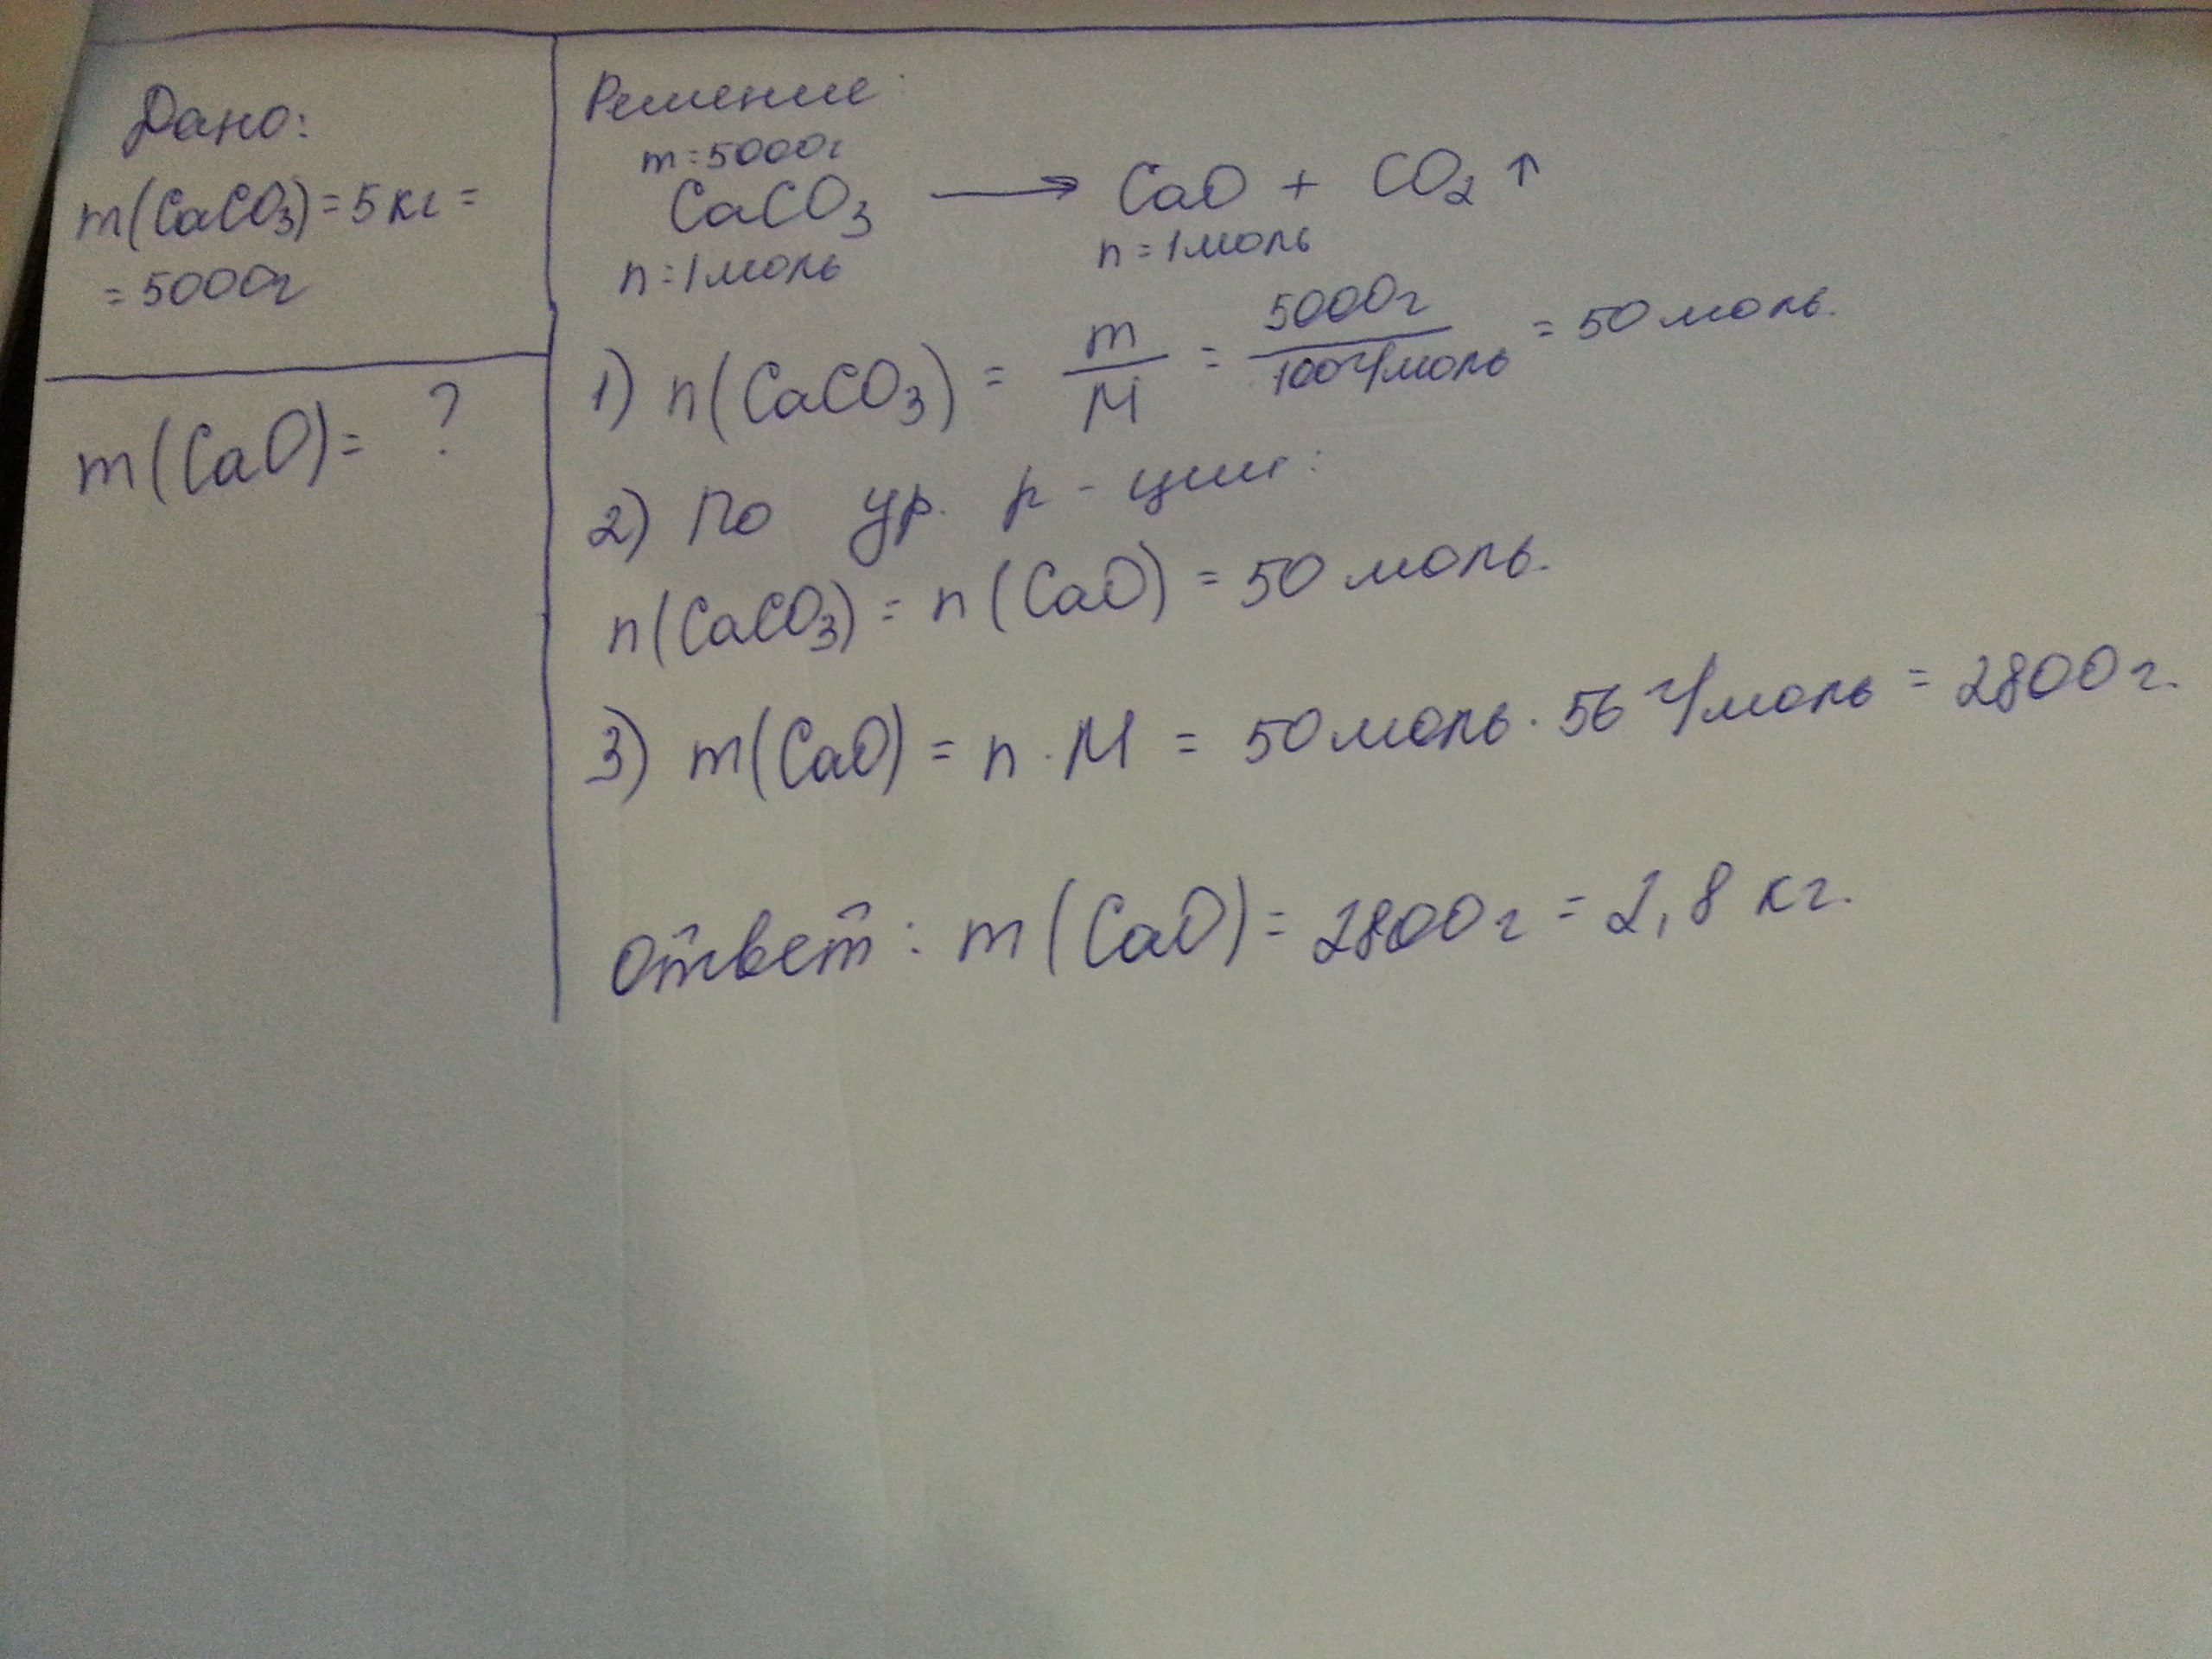 Дано:
m(CaCO₃) = 5 кг =
= 5000г
m(CaO) = ?
Решение:
m = 5000г
CaCO₃ → CaO + CO₂ ↑
n = 1 моль n = 1 моль
1) n(CaCO₃) = m/M = 5000г/100 г/моль = 50 моль.
2) По ур. р-ции:
n(CaCO₃) = n(CaO) = 50 моль.
3) m(CaO) = n · M = 50 моль · 56 г/моль = 2800 г.
Ответ: m(CaO) = 2800 г = 2,8 кг.